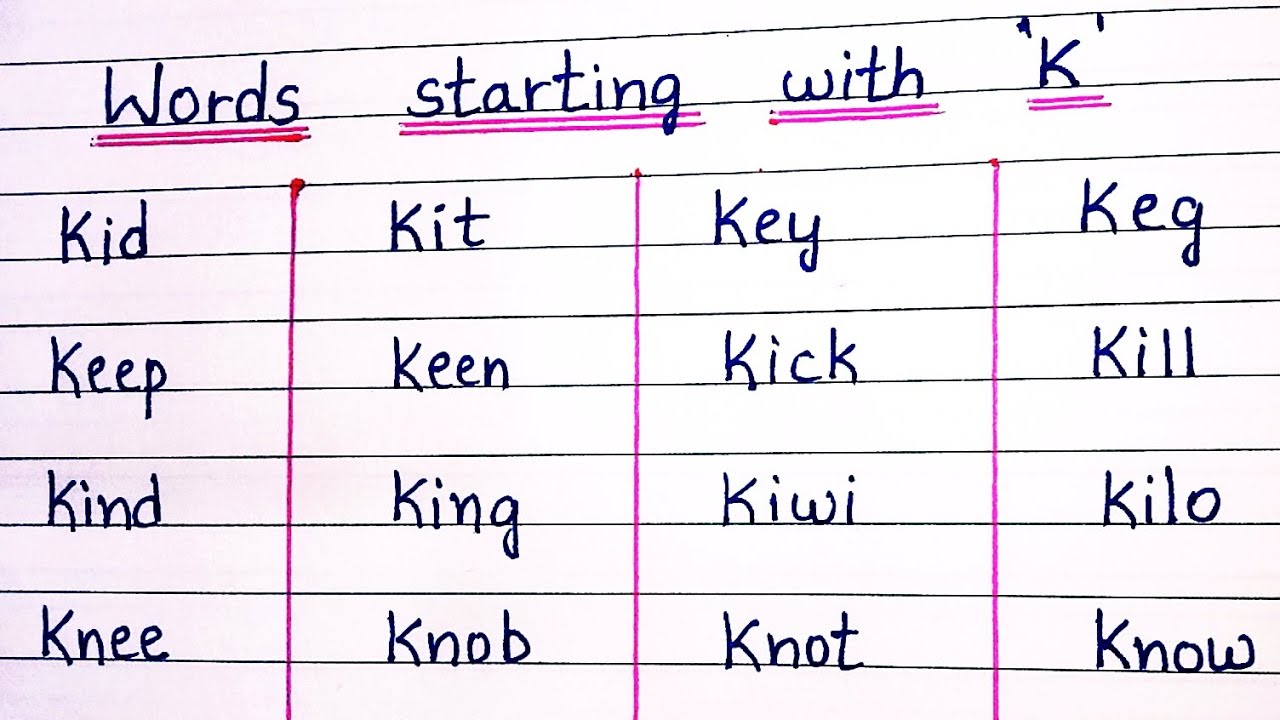 Words starting with 'K'
Kid Kit Key Keg
Keep Keen Kick Kill
Kind King Kiwi Kilo
Knee Knob Knot Know